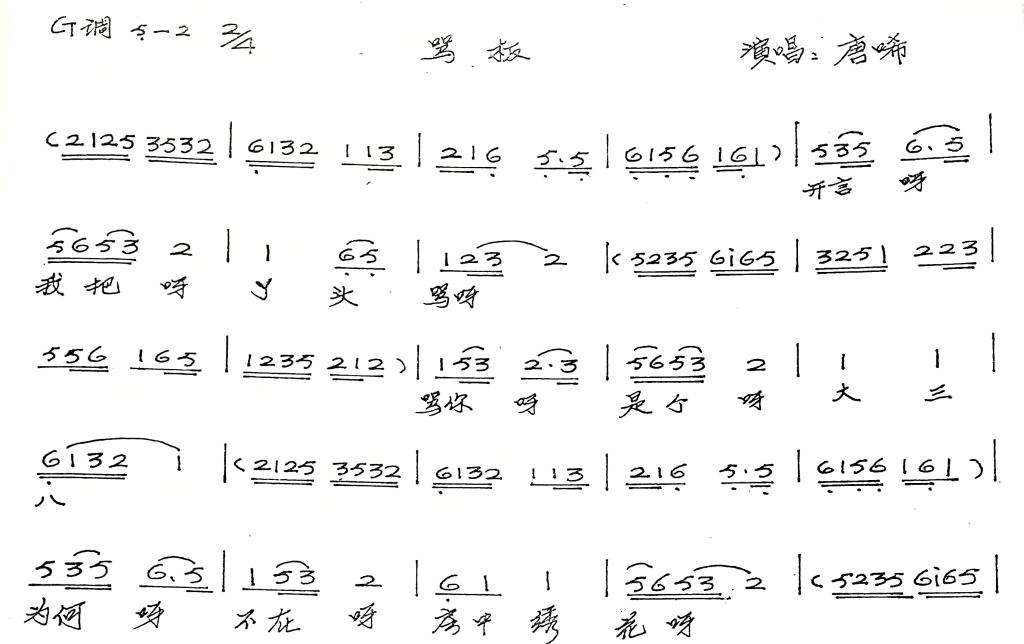 G调 5-2 2/4 骂板 演唱：唐唏
(2125 3532 | 6132 113 | 216 5.5 | 6156 161) | 535 6.5 |
开言 呀
5653 2 | 1 65 | 123 2 |(5235 6i65 | 3251 223 |
我把 呀 丫 头 骂呀
556 165 | 1235 212) | 153 2.3 | 5653 2 | 1 1 |
骂你 呀 是个 呀 大 三
6132 1 |(2125 3532 | 6132 113 | 216 5.5 | 6156 161)|
八
535 6.5 | 153 2 | 61 1 | 5653 2 |(5235 6i65 |
为何 呀 不在 呀 房中 绣 花呀